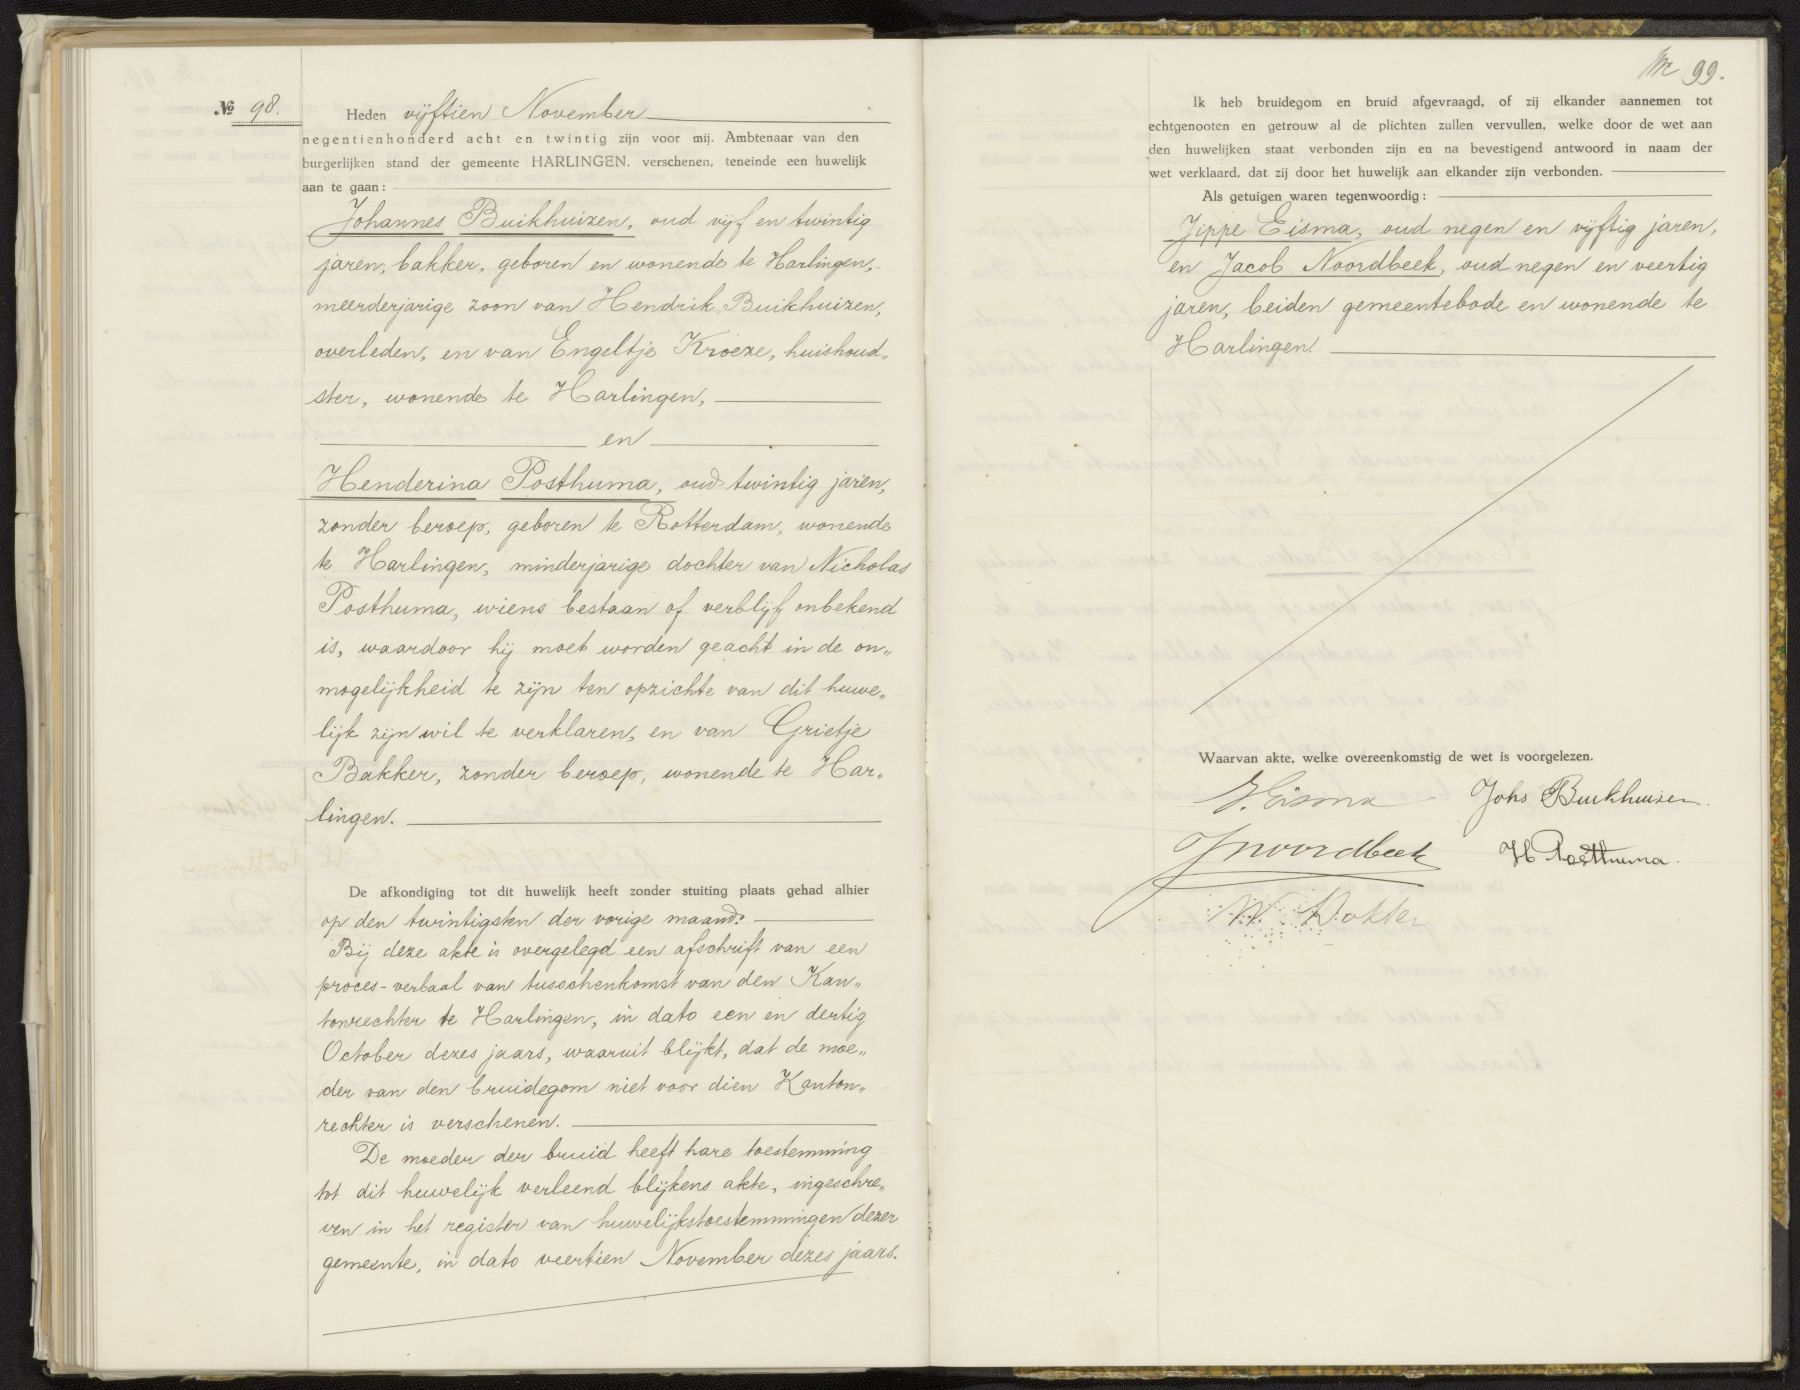 № 98.
Heden vijftien November
negentienhonderd acht en twintig zijn voor mij, Ambtenaar van den
burgerlijken stand der gemeente HARLINGEN, verschenen, teneinde een huwelijk
aan te gaan:
Johannes Buikhuizen, oud vijf en twintig
jaren, bakker, geboren en wonende te Harlingen,
meerderjarige zoon van Hendrik Buikhuizen,
overleden, en van Engeltje Kroeze, huishoud„
ster, wonende te Harlingen,
en
Henderina Posthuma, oud twintig jaren,
zonder beroep, geboren te Rotterdam, wonende
te Harlingen, minderjarige dochter van Nicholas
Posthuma, wiens bestaan of verblijf onbekend
is, waardoor hij moet worden geacht in de on„
mogelijkheid te zijn ten opzichte van dit huwe„
lijk zijn wil te verklaren, en van Grietje
Bakker, zonder beroep, wonende te Har„
lingen.
De afkondiging tot dit huwelijk heeft zonder stuiting plaats gehad alhier
op den twintigsten der vorige maand.
Bij deze akte is overgelegd een afschrift van een
proces-verbaal van tusschenkomst van den Kan„
tonrechter te Harlingen, in dato een en dertig
October dezes jaars, waaruit blijkt, dat de moe„
der van den bruidegom niet voor dien Kanton„
rechter is verschenen.
De moeder der bruid heeft hare toestemming
tot dit huwelijk verleend blijkens akte, ingeschre„
ven in het register van huwelijkstoestemmingen dezer
gemeente, in dato veertien November dezes jaars.
99.
Ik heb bruidegom en bruid afgevraagd, of zij elkander aannemen tot
echtgenooten en getrouw al de plichten zullen vervullen, welke door de wet aan
den huwelijken staat verbonden zijn en na bevestigend antwoord in naam der
wet verklaard, dat zij door het huwelijk aan elkander zijn verbonden.
Als getuigen waren tegenwoordig:
Jippe Eisma, oud negen en vijftig jaren,
en Jacob Noordbeek, oud negen en veertig
jaren, beiden gemeentebode en wonende te
Harlingen.
Waarvan akte, welke overeenkomstig de wet is voorgelezen.
J. Eisma Johs Buikhuizen.
J Noordbeek H Posthuma.
W. Dokter